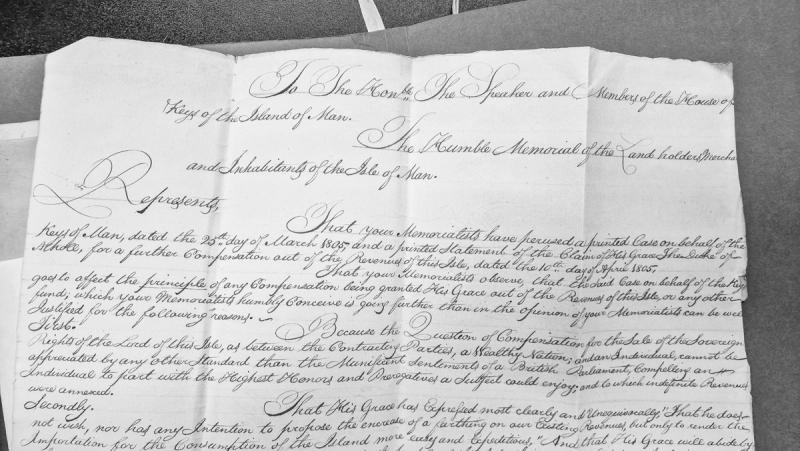 To The Honble. The Speaker and Members of the House of
Keys of the Island of Man.
The Humble Memorial of the Land holders, Merchan
and Inhabitants of the Isle of Man.
Represents,
That your Memorialists have perused a printed Case on behalf of the
Keys of Man, dated the 25th. day of March 1805, and a printed Statement of the Claim of His Grace The Duke of
Atholl, for a further Compensation out of the Revenues of this Isle, dated the 10th. day of April 1805.
That your Memorialists observe, that the said Case on behalf of the Keys
goes to affect the principle of any Compensation being granted His Grace out of the Revenues of this Isle, or any other
fund; which your Memorialists humbly Conceive is going further than in the opinion of your Memorialists can be well
Justified for the following reasons.
First.
Because the Question of Compensation for the Sale of the Sovereign
Rights of the Lord of this Isle, as between the Contracting Parties, a Wealthy Nation; and an Individual, cannot be
appreciated by any other Standard than the Munificent Sentiments of a British Parliament, Compelling an
Individual to part with the Highest Honors and Prerogatives a Subject could enjoy; and to which indefinite Revenues
were annexed.
Secondly.
That His Grace has Expressed most clearly and Unequivocally "That he does
not wish, nor has any Intention to propose the encrease of a farthing on our Existing Revenues, but only to render the
Importation for the Consumption of the Island more easy and Expeditious, "And that His Grace will abide by